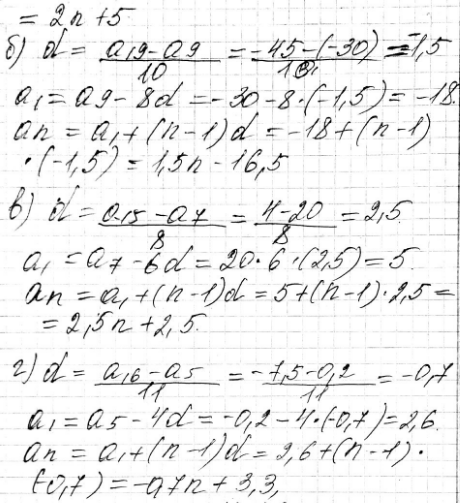 = 2n+5
б) d = (a19 - a9)/10 = (-45-(-30))/10 = -1,5
a1 = a9 - 8d = -30-8·(-1,5) = -18.
an = a1+(n-1)d = -18+(n-1)
·(-1,5) = 1,5n - 16,5
в) d = (a15 - a7)/8 = (4-20)/8 = 2,5.
a1 = a7 - 6d = 20·6·(2,5) = 5.
an = a1+(n-1)d = 5+(n-1)·2,5 =
= 2,5n+2,5.
г) d = (a16 - a5)/11 = (-7,5-0,2)/11 = -0,7
a1 = a5 - 4d = -0,2-4·(-0,7) = 2,6.
an = a1+(n-1)d = 2,6+(n-1)·
(-0,7) = -0,7n+3,3,